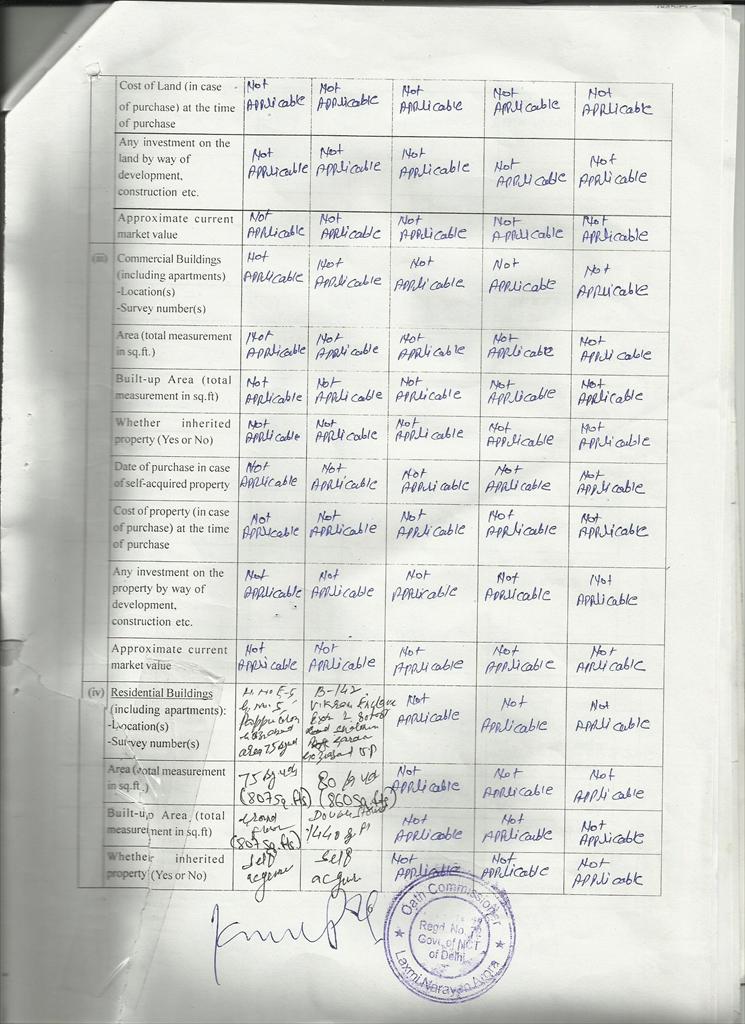 Cost of Land (in case of purchase) at the time of purchase Not Applicable Not Applicable Not Applicable Not Applicable Not Applicable
Any investment on the land by way of development, construction etc. Not Applicable Not Applicable Not Applicable Not Applicable Not Applicable
Approximate current market value Not Applicable Not Applicable Not Applicable Not Applicable Not Applicable
(iii) Commercial Buildings (including apartments) -Location(s) -Survey number(s) Not Applicable Not Applicable Not Applicable Not Applicable Not Applicable
Area (total measurement in sq.ft.) Not Applicable Not Applicable Not Applicable Not Applicable Not Applicable
Built-up Area (total measurement in sq.ft) Not Applicable Not Applicable Not Applicable Not Applicable Not Applicable
Whether inherited property (Yes or No) Not Applicable Not Applicable Not Applicable Not Applicable Not Applicable
Date of purchase in case of self-acquired property Not Applicable Not Applicable Not Applicable Not Applicable Not Applicable
Cost of property (in case of purchase) at the time of purchase Not Applicable Not Applicable Not Applicable Not Applicable Not Applicable
Any investment on the property by way of development, construction etc. Not Applicable Not Applicable Not Applicable Not Applicable Not Applicable
Approximate current market value Not Applicable Not Applicable Not Applicable Not Applicable Not Applicable
(iv) Residential Buildings (including apartments): -Location(s) -Survey number(s) area 75 B-142 Vikram Enclave UP Not Applicable Not Applicable Not Applicable
Area (total measurement in sq.ft.) 75 (807 sq.fts) 80 (860 sq.fts) Not Applicable Not Applicable Not Applicable
Built-up Area (total measurement in sq.ft) (807 sq.fts) 1440 Not Applicable Not Applicable Not Applicable
Whether inherited property (Yes or No) Self Self Not Applicable Not Applicable Not Applicable
Oath Commissioner
Regd. No.
Govt. of NCT
of Delhi
Laxmi Narayan Arora